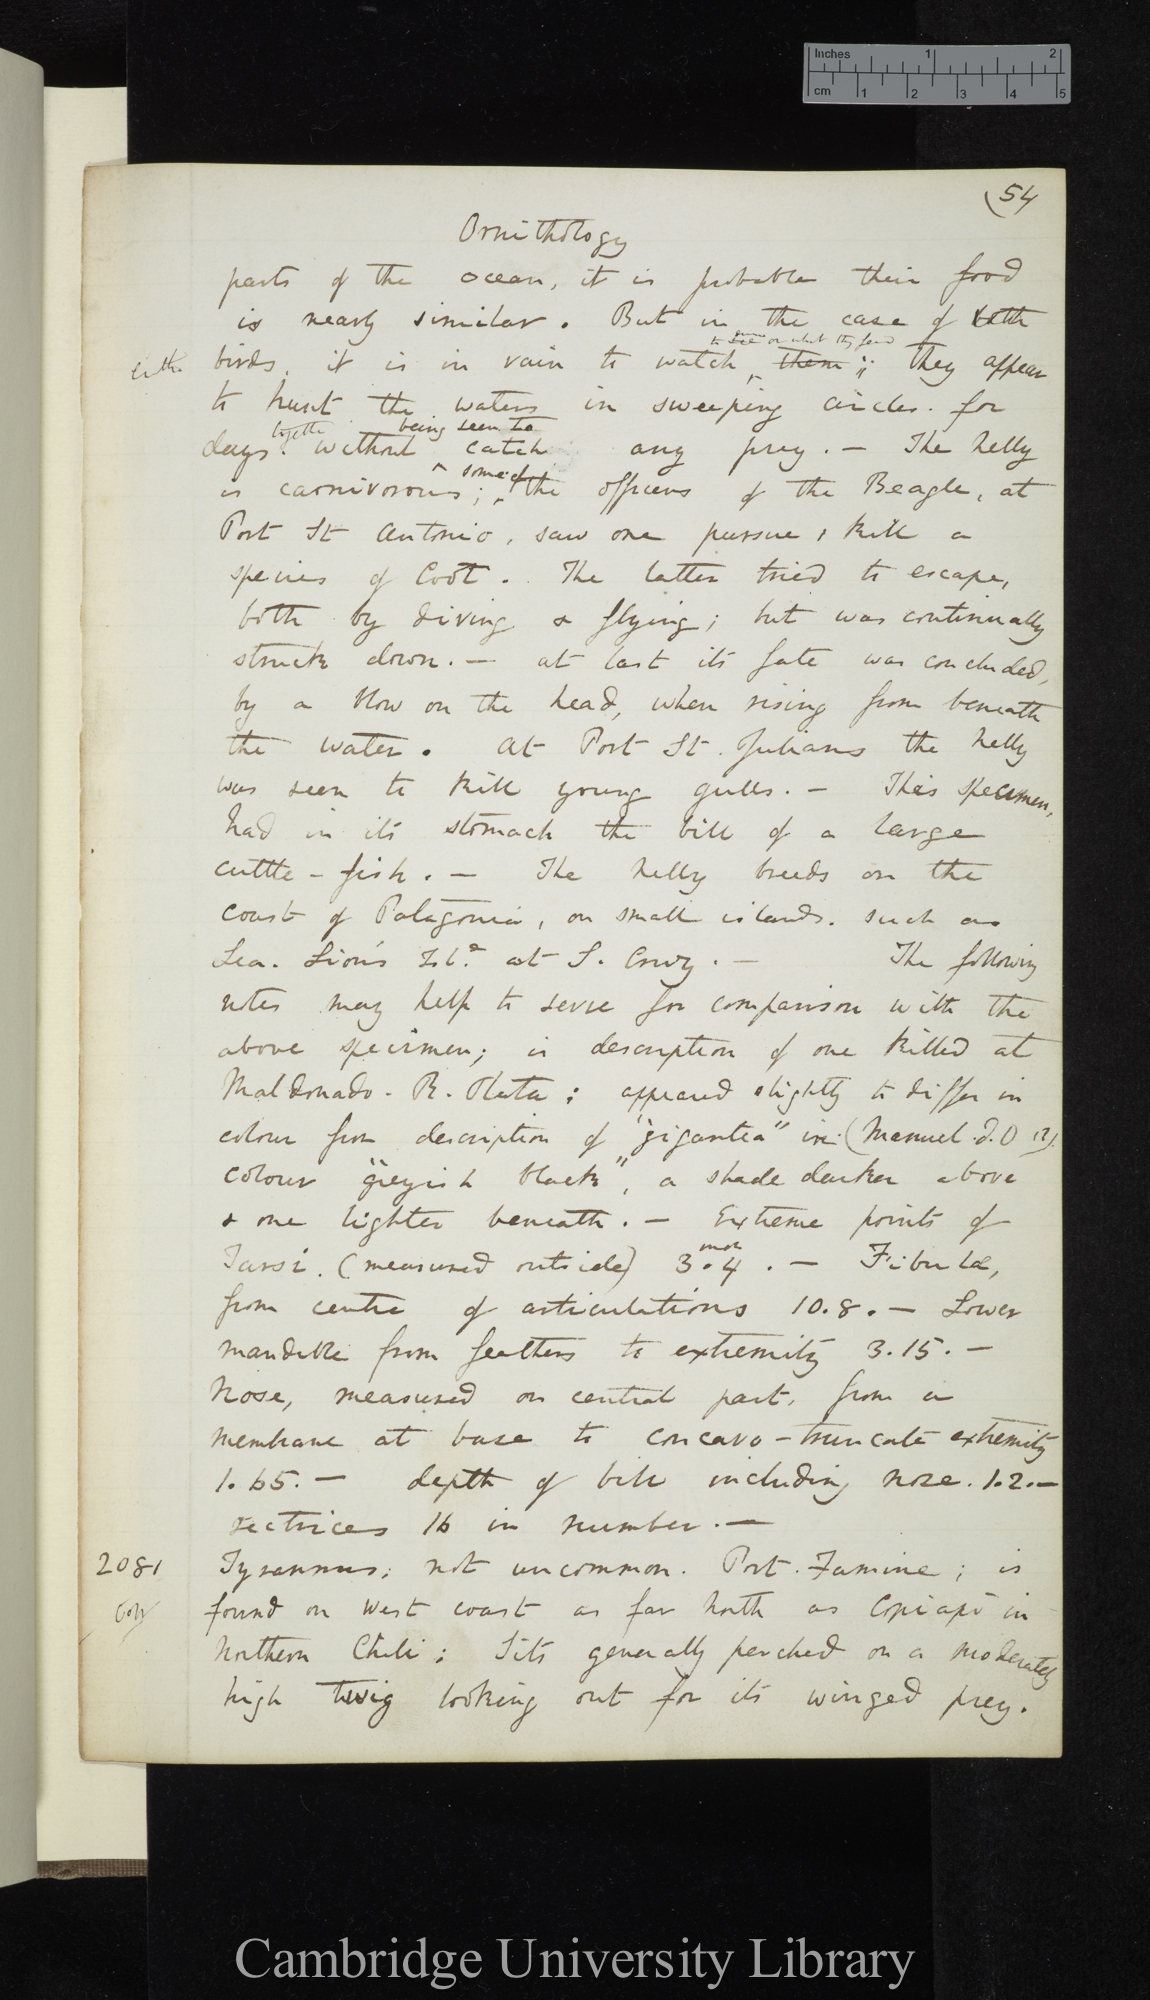 Inches 1 2
cm 1 2 3 4 5
54
Ornithology
parts of the ocean, it is probable their food
is nearly similar. But in the case of both
to see on what they feed
either birds, it is in vain to watch them; they appear
to hunt the waters in sweeping circles. for
together being seen to
days. without catch any prey. — The Nelly
some of
is carnivorous; the officers of the Beagle, at
Port St Antonio, saw one pursue & kill a
species of Coot. The latter tried to escape,
both by diving & flying; but was continually
struck down. — at last its fate was concluded,
by a blow on the head, when rising from beneath
the water. At Port St. Julians the Nelly
was seen to kill young gulls. — This specimen,
had in its stomach the bill of a large
cuttle-fish. — The Nelly breeds on the
coast of Patagonia, on small islands. such as
Sea. Lion's Isld. at S. Cruz. — The following
notes may help to serve for comparison with the
above specimen; is description of one killed at
Maldonado. R. Plata: appeared slightly to differ in
colour from description of "gigantea" in: (Manuel. d. O
colour "greyish black", a shade darker above
& one lighter beneath. — Extreme points of
Tarsi. (measured outside) 3.4. — Fibula,
from centre of articulations 10.8. — Lower
mandible from feathers to extremity 3.15. —
Nose, measured on central part, from a
membrane at base to concavo-truncate extremity
1.65. — depth of bill including nose. 1.2. —
rectrices 16 in number. —
2081 Tyrannus; not uncommon. Port. Famine; is
found on West coast as far North as Copiapò in
Northern Chili: Sits generally perched on a moderately
high twig looking out for its winged prey.
Cambridge University Library